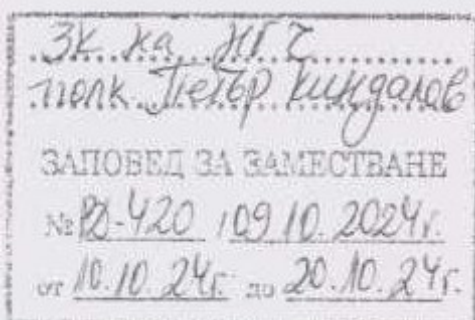 ЗК на НГЧ
полк. Петър Киндалов
ЗАПОВЕД ЗА ЗАМЕСТВАНЕ
№ РД-420 / 09.10.2024г.
от 10.10.24г. до 20.10.24г.